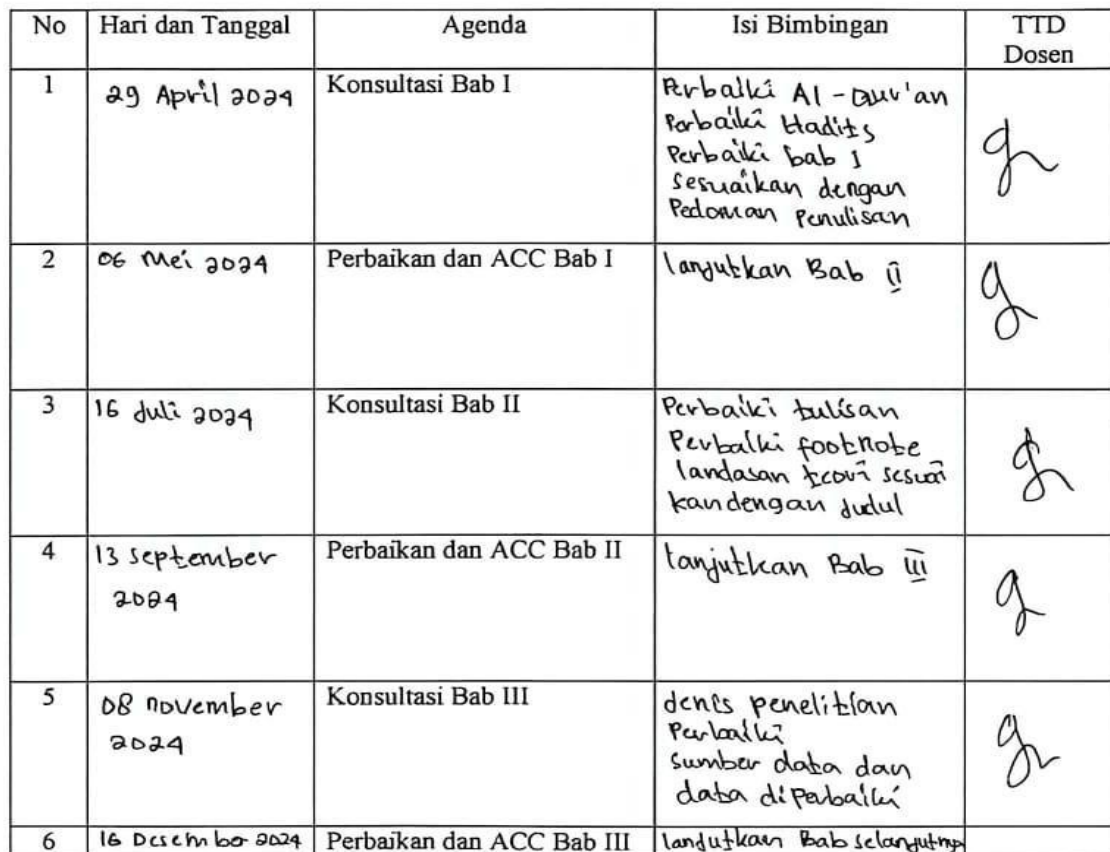 No Hari dan Tanggal Agenda Isi Bimbingan TTD
Dosen
1 29 April 2024 Konsultasi Bab I Perbaiki Al-Qur'an
Perbaiki Hadits
Perbaiki bab I
Sesuaikan dengan
Pedoman Penulisan
2 06 Mei 2024 Perbaikan dan ACC Bab I lanjutkan Bab II
3 16 Juli 2024 Konsultasi Bab II Perbaiki tulisan
Perbaiki footnote
landasan teori sesuai
kan dengan Judul
4 13 September Perbaikan dan ACC Bab II lanjutkan Bab III
2024
5 08 November Konsultasi Bab III Jenis penelitian
2024 Perbaiki
Sumber data dan
data diPerbaiki
6 16 Desember 2024 Perbaikan dan ACC Bab III lanjutkan Bab selanjutnya